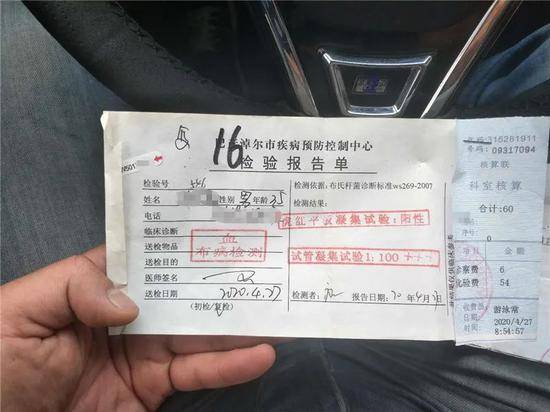 16
巴彦淖尔市疾病预防控制中心
检验报告单
检验号 546
姓名 性别 男 年龄 35
电话
临床诊断
送检物品
血
布病检测
医师签名
送检日期 2020.4.27
(初检/复检)
检测依据:布氏杆菌诊断标准ws269-2007
检测结果:
虎红平板凝集试验:阳性
试管凝集试验1:100+++
检测者: 报告日期:20 年4月 日
316281911
号码:09317094
核算联
科室核算
合计:60
0
项目 金额
诊察费 6
化验费 54
收费员 游泳常
2020/4/27
8:54:57